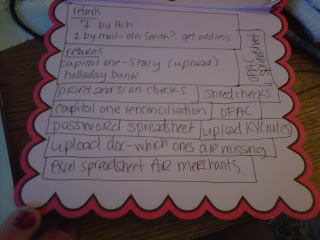 returns
7 by Ach
1 by mail-old Smith? get address
returns
capital one-Stacy (upload)
holladay bank
OFAC spreadsheet
print and scan checks
Shred checks
capital one renconciliation
OFAC
password spreadsheet
upload KYC notes
upload doc-which ones are missing
excel spreadsheet for merchants